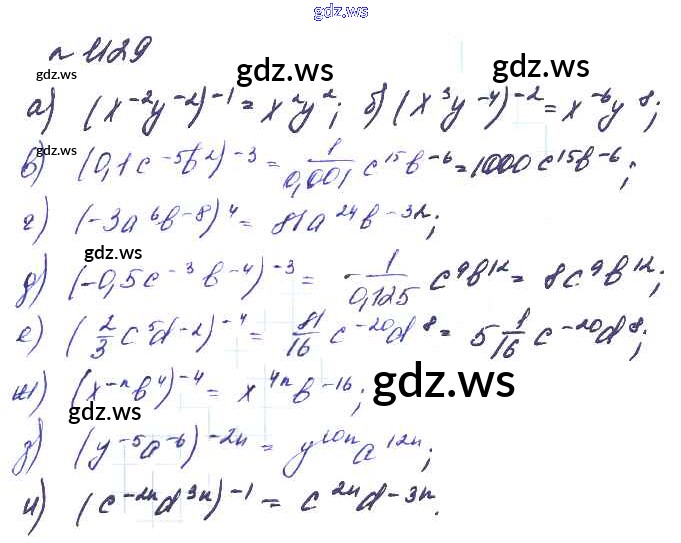 gdz.ws
n 1129
gdz.ws gdz.ws gdz.ws
а) (x⁻²y⁻²)⁻¹ = x²y²; б) (x³y⁻⁴)⁻² = x⁻⁶y⁸;
gdz.ws
в) (0,1c⁻⁵b²)⁻³ = 1/0,001 c¹⁵b⁻⁶ = 1000c¹⁵b⁻⁶;
г) (-3a⁶b⁻⁸)⁴ = 81a²⁴b⁻³²;
gdz.ws gdz.ws
д) (-0,5c⁻³b⁻⁴)⁻³ = -1/0,125 c⁹b¹² = 8c⁹b¹²;
е) (2/3 c⁵d⁻²)⁻⁴ = 81/16 c⁻²⁰d⁸ = 5 1/16 c⁻²⁰d⁸;
ж) (x⁻ⁿb⁴)⁻⁴ = x⁴ⁿb⁻¹⁶;
gdz.ws gdz.ws
з) (y⁻⁵a⁻⁶)⁻²ⁿ = y¹⁰ⁿa¹²ⁿ;
и) (c⁻²ⁿd³ⁿ)⁻¹ = c²ⁿd⁻³ⁿ.
gdz.ws gdz.ws